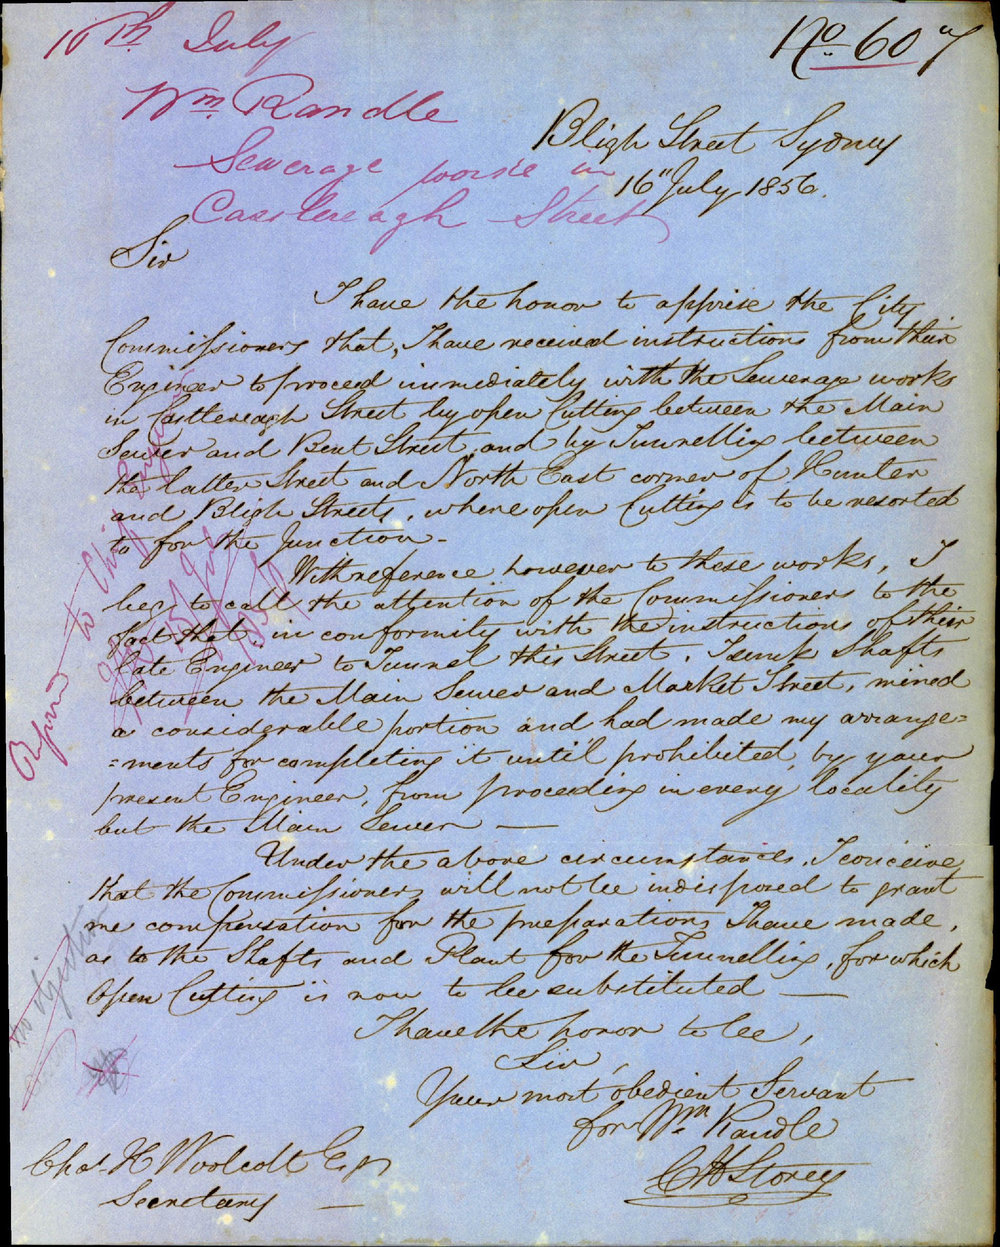 16th July
No 607
Wm Randle
Sewerage works in
Castlereagh Street
Bligh Street Sydney
16" July 1856.
Sir
I have the honor to apprise the City
Commissioners that, I have received instructions from their
Engineer to proceed immediately with the Sewerage works
in Castlereagh Street by open Cutting between the Main
Sewer and Bent Street, and by Tunnelling between
the latter Street and North East corner of Hunter
and Bligh Streets, where open Cutting is to be resorted
to for the Junction.
With reference however to these works, I
beg to call the attention of the Commissioners to the
fact that in conformity with the instructions of their
late Engineer to Tunnel this Street, I sunk Shafts
between the Main Sewer and Market Street, mined
a considerable portion and had made my arrange=
=ments for completing it until prohibited, by your
present Engineer, from proceeding in every locality
but the Main Sewer —
Under the above circumstances, I conceive
that the Commissioners will not be indisposed to grant
me compensation for the preparations I have made,
as to the Shafts and Plant for the Tunnelling, for which
Open Cutting is now to be substituted —
I have the honor to be,
Sir,
Your most obedient Servant
for Wm Randle
C H Storey
Chas H Woolcott Esqr
Secretary —
to Chief
no objection